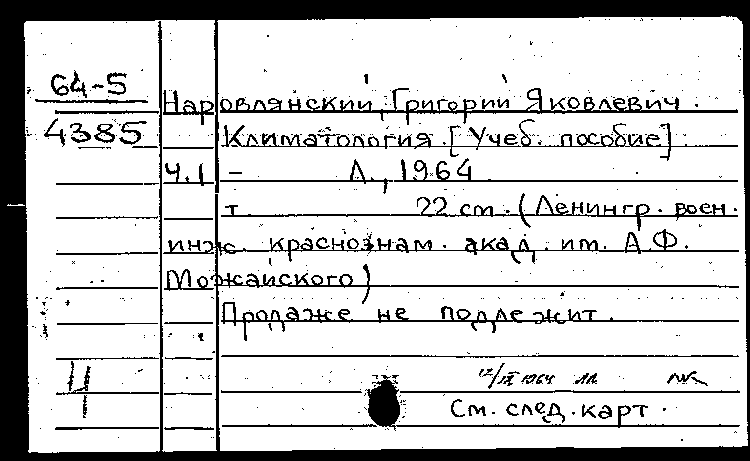 64-5
4385
Наровлянский, Григорий Яковлевич.
Климатология. [Учеб. пособие]
Ч.1 - Л., 1964
т. 22 см. (Ленингр. воен.
инж. краснознам. акад. им. А.Ф.
Можайского)
Продаже не подлежит.
4
1964
См. след. карт.